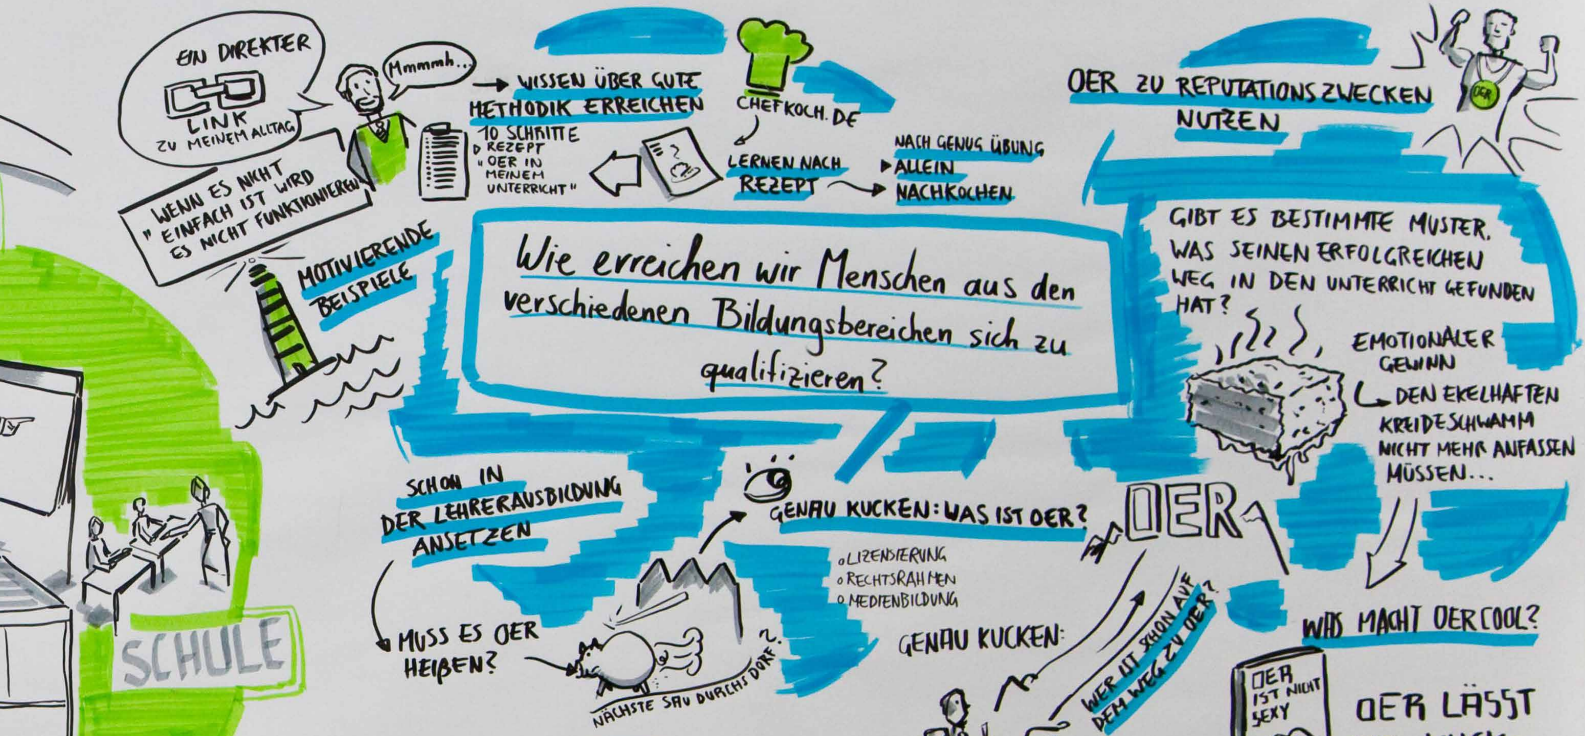 EIN DIREKTER
LINK
ZU MEINEM ALLTAG
Mmmmh...
"WENN ES NICHT
EINFACH IST WIRD
ES NICHT FUNKTIONIEREN
MOTIVIERENDE
BEISPIELE
WISSEN ÜBER GUTE
METHODIK ERREICHEN
10 SCHRITTE
REZEPT
"OER IN
MEINEM
UNTERRICHT"
CHEFKOCH.DE
LERNEN NACH
REZEPT
NACH GENUG ÜBUNG
ALLEIN
NACHKOCHEN
OER ZU REPUTATIONSZWECKEN
NUTZEN
OER
Wie erreichen wir Menschen aus den
verschiedenen Bildungsbereichen sich zu
qualifizieren?
GIBT ES BESTIMMTE MUSTER,
WAS SEINEN ERFOLGREICHEN
WEG IN DEN UNTERRICHT GEFUNDEN
HAT?
EMOTIONALER
GEWINN
DEN EKELHAFTEN
KREIDESCHWAMM
NICHT MEHR ANFASSEN
MÜSSEN...
SCHON IN
DER LEHRERAUSBILDUNG
ANSETZEN
MUSS ES OER
HEIßEN?
NÄCHSTE SAU DURCHS DORF?
GENAU KUCKEN: WAS IST OER?
LIZENSIERUNG
RECHTSRAHMEN
MEDIENBILDUNG
OER
GENAU KUCKEN:
WER IST SCHON AUF
DEM WEG ZU OER?
WAS MACHT OER COOL?
OER
IST NICHT
SEXY
OER LÄSST
SCHULE